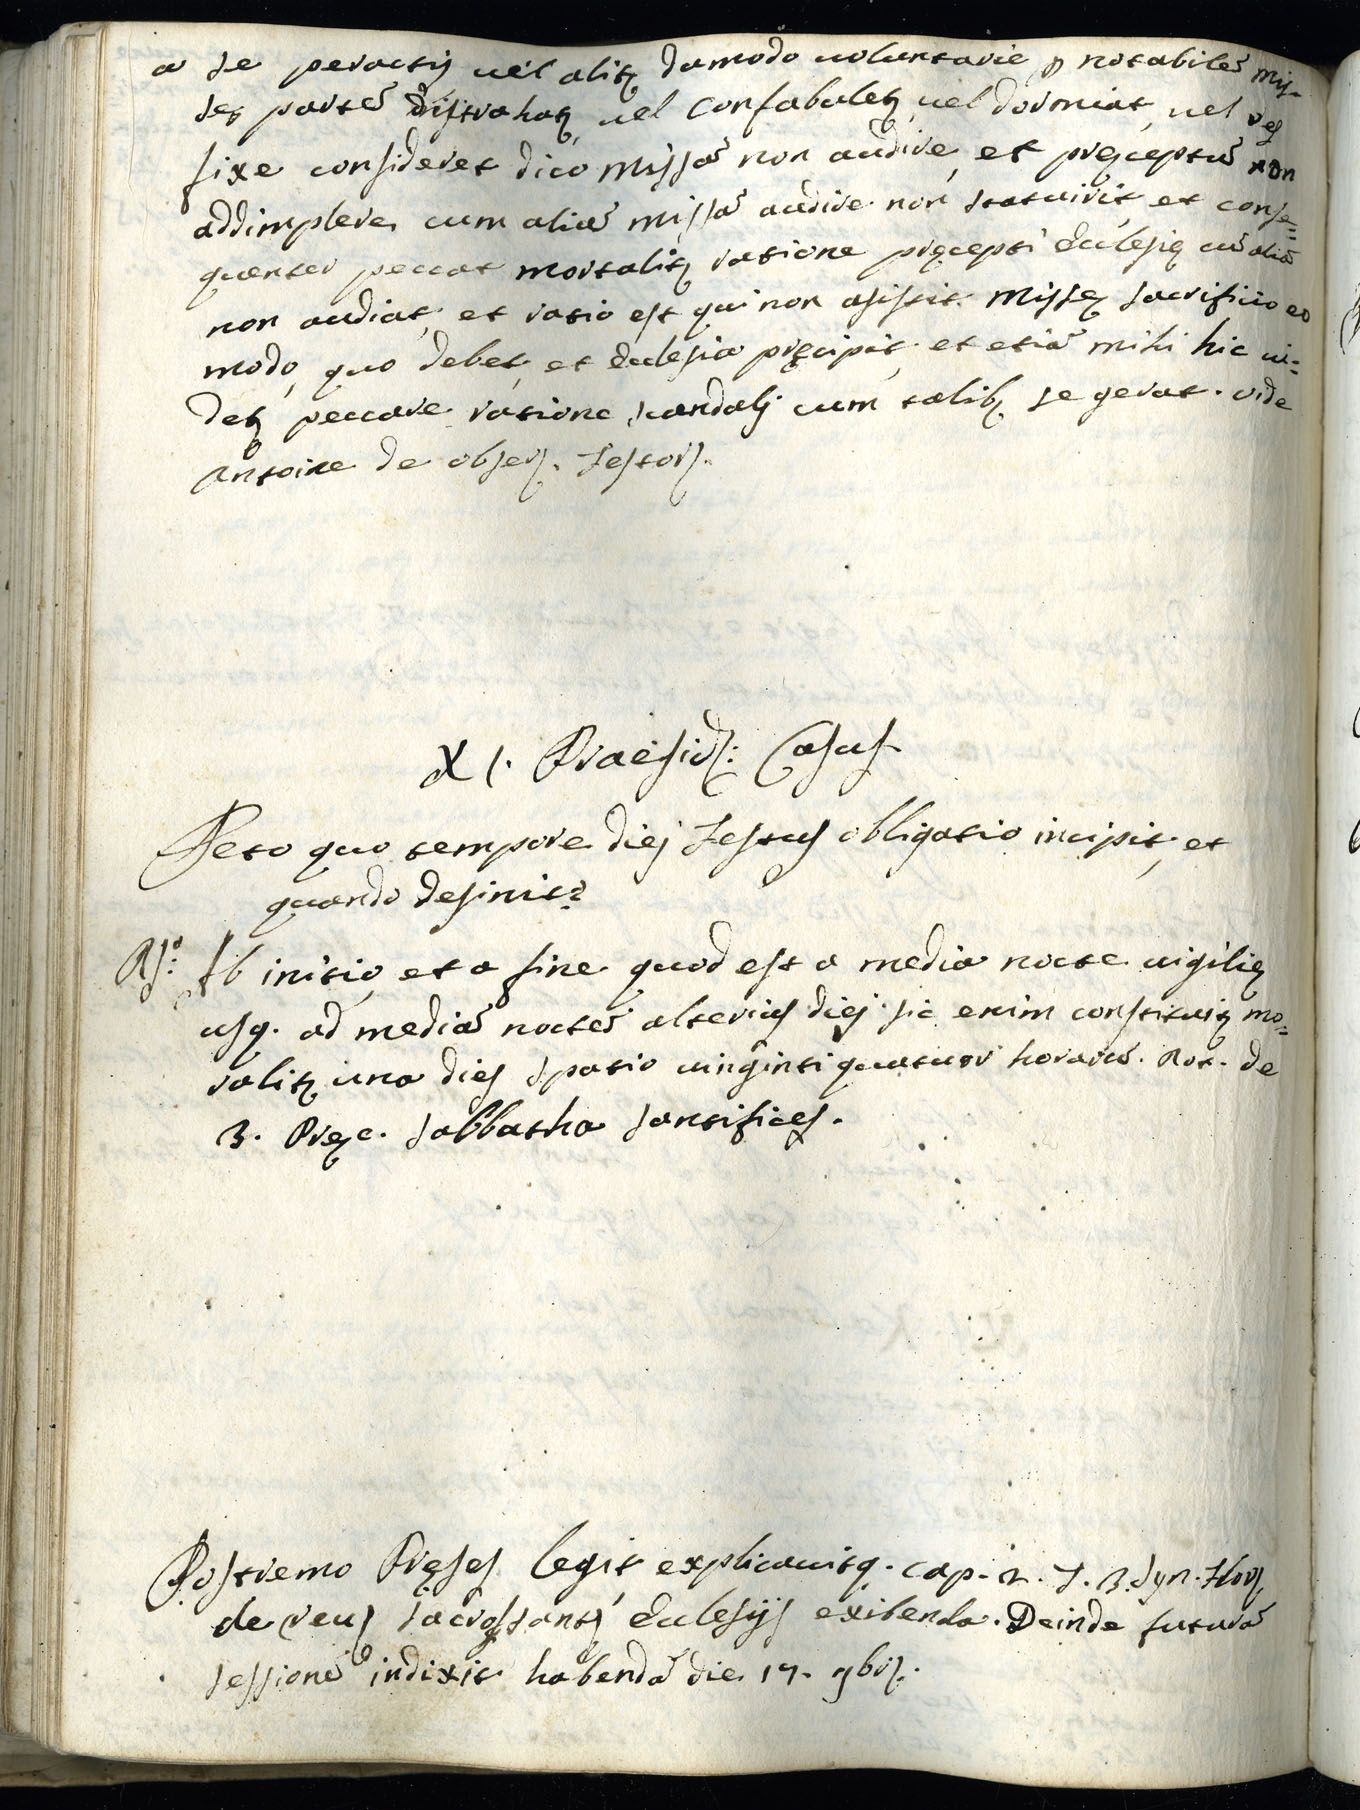 a se peractis uel alitȝ dumodo uoluntarie ꝑ notabilē Mis-
sȩ partē distrahatȝ, uel confabuletȝ, uel dormiat, uel res
fixe consideret dico Missā non audire, et prȩceptū non
addimplere, cum aliā missā audire non statuirit, et conse=
quenter peccat mortalitȝ ratione prȩcepti Ecclesiȩ cū aliā
non audiat, et ratio est qui non asistit Missȩ sacrificio eo
modo, quo debet, et Ecclesia prȩcipit, et etiā mihi hic ui=
detȝ peccare ratione scandalj cum talibȝ se gerat. Vide
Antoine de obser. Festor.
XI. Praesid: Casus
Peto quo tempore diej Festus obligatio incipit, et
quando desinit?
Rs.º Ab initio, et a fine quod est a media nocte uigiliȩ
usq. ad mediā noctē alterius diej sic enim constituitȝ mo=
ralitȝ una dies spatio uinginti quatuor horarū. Not. de
3. Prȩc. Sabbatha santifices.
Postremo Prȩses legit explicauitq. cap. 2. T. 3. Syn. Flor.
de reu. sacrossantis Ecclesijs exibenda. Deinde futurā
sessionē indixit habendā die 17. 9bris.